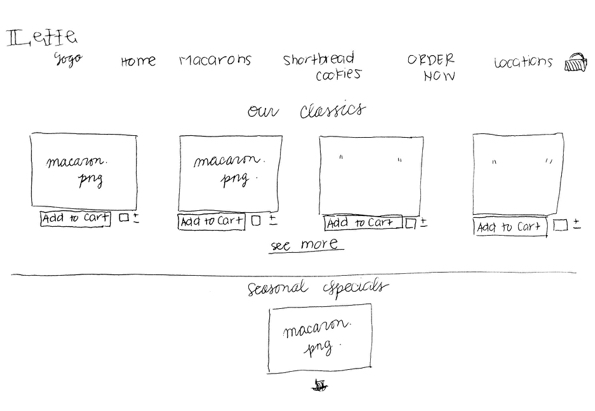 Lette
logo
Home
Macarons
Shortbread
cookies
ORDER
NOW
Locations
our classics
macaron.
png
macaron.
png.
"  "
"  "
Add to Cart ±
Add to Cart ±
Add to Cart ±
Add to Cart ±
see more
seasonal specials
macaron.
png.